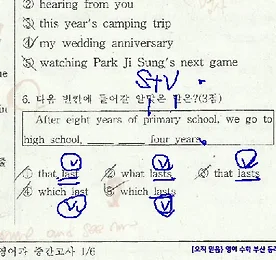 ② hearing from you
③ this year's camping trip
④ my wedding anniversary
⑤ watching Park Ji Sung's next game
S+V
6. 다음 빈칸에 들어갈 알맞은 것은?(3점)
After eight years of primary school, we go to
high school, ______ ______ four years.
① that last ② what lasts ③ that lasts
④ which last ⑤ which lasts
영어가 중간고사 1/6